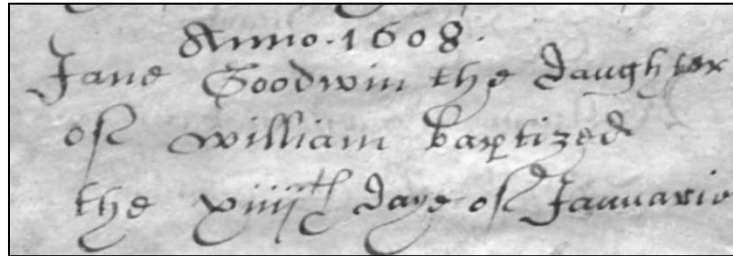 Anno. 1608.
Jane Goodwin the daughter
of William baptized
the xiiiith daye of Januarie